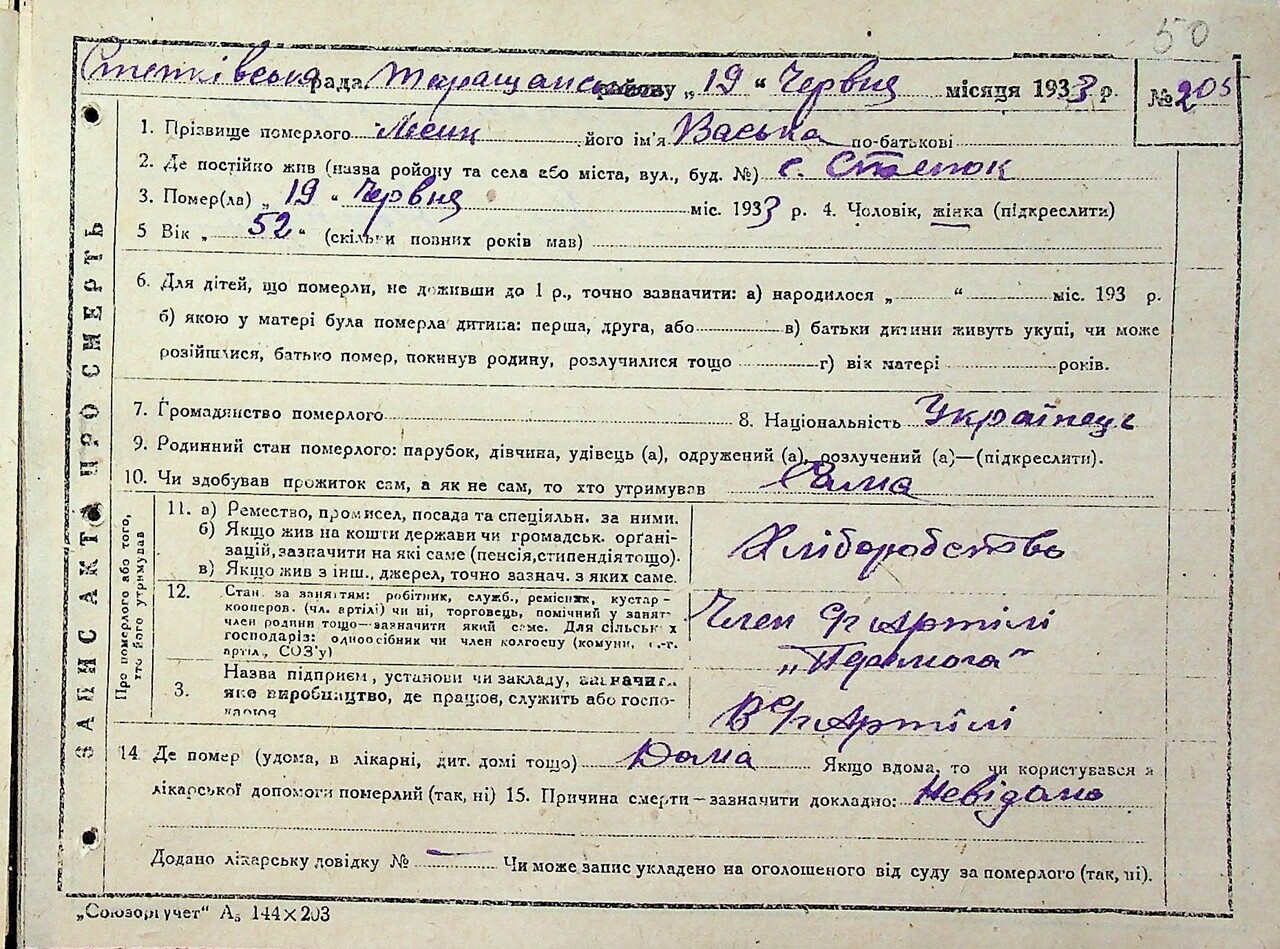 50
Степківська рада Таращанського району „19“ Червня місяця 1933 р. № 205
1. Прізвище померлого Лесик його ім'я Васька по-батькові
2. Де постійко жив (назва району та села або міста, вул., буд. №) с. Степок
3. Помер(ла) „19“ Червня міс. 1933 р. 4. Чоловік, жінка (підкреслити)
5 Вік „52“ (скільки повних років мав)
6. Для дітей, що померли, не доживши до 1 р., точно зазначити: а) народилося „ “ міс. 193 р.
б) якою у матері була померла дитина: перша, друга, або в) батьки дитини живуть укупі, чи може
розійшлися, батько помер, покинув родину, розлучилися тощо г) вік матері років.
7. Громадянство померлого 8. Національність Українець
9. Родинний стан померлого: парубок, дівчина, удівець (а), одружений (а), розлучений (а)—(підкреслити).
10. Чи здобував прожиток сам, а як не сам, то хто утримував Сама
ЗАПИС АКТА ПРО СМЕРТЬ
Про померлого або того, хто його утримував
11. а) Ремество, промисел, посада та спеціяльн. за ними.
б) Якщо жив на кошти держави чи громадськ. орґані-
зацій, зазначити на які саме (пенсія, стипендія тощо).
в) Якщо жив з інш., джерел, точно зазнач. з яких саме.
Хліборобство
12. Стан за заняттям: робітник, служб., ремісник, кустар-
кооперов. (чл. артілі) чи ні, торговець, помічний у занят.
член родини тощо—зазначити який саме. Для сільських
господаріз: одноосібник чи член колгоспу (комуни, с.-г.
артіл., СОЗ'у)
Член с/г Артілі
„Перемога“
3. Назва підприєм., установи чи закладу, зазначити
яке виробництво, де працюв, служить або госпо-
В с/г Артілі
14 Де помер (удома, в лікарні, дит. домі тощо) Дома Якщо вдома, то чи користувався
лікарської допомоги померлий (так, ні) 15. Причина смерти – зазначити докладно: Невідомо
Додано лікарську довідку № — Чи може запис укладено на оголошеного від суду за померлого (так, ні).
„Союзоргучет“ А₅ 144×203